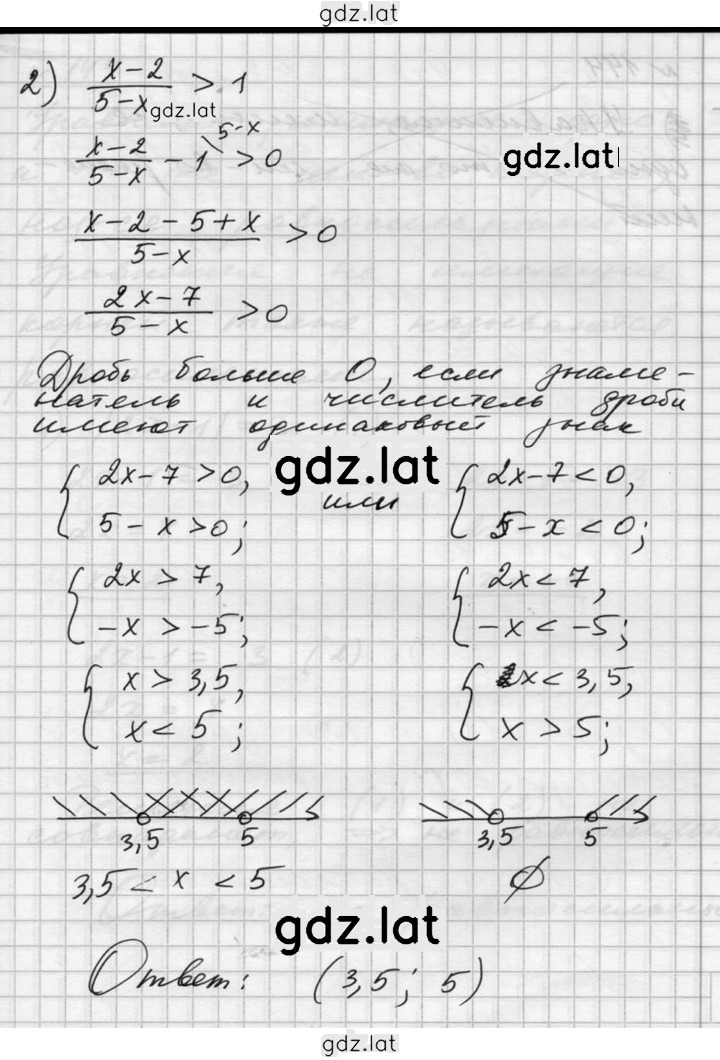 gdz.lat
2) (x-2)/(5-x) > 1
gdz.lat
(x-2)/(5-x) - 1^(5-x) > 0
gdz.lat
(x-2-5+x)/(5-x) > 0
(2x-7)/(5-x) > 0
Дробь больше 0, если знаме-
натель и числитель дроби
имеют одинаковый знак
gdz.lat
{ 2x-7>0, или { 2x-7<0,
5-x>0; 5-x<0;
{ 2x>7, { 2x<7,
-x>-5; -x<-5;
{ x>3,5, { x<3,5,
x<5; x>5;
3,5 5 3,5 5
3,5 < x < 5 ∅
gdz.lat
Ответ: (3,5; 5)
gdz.lat